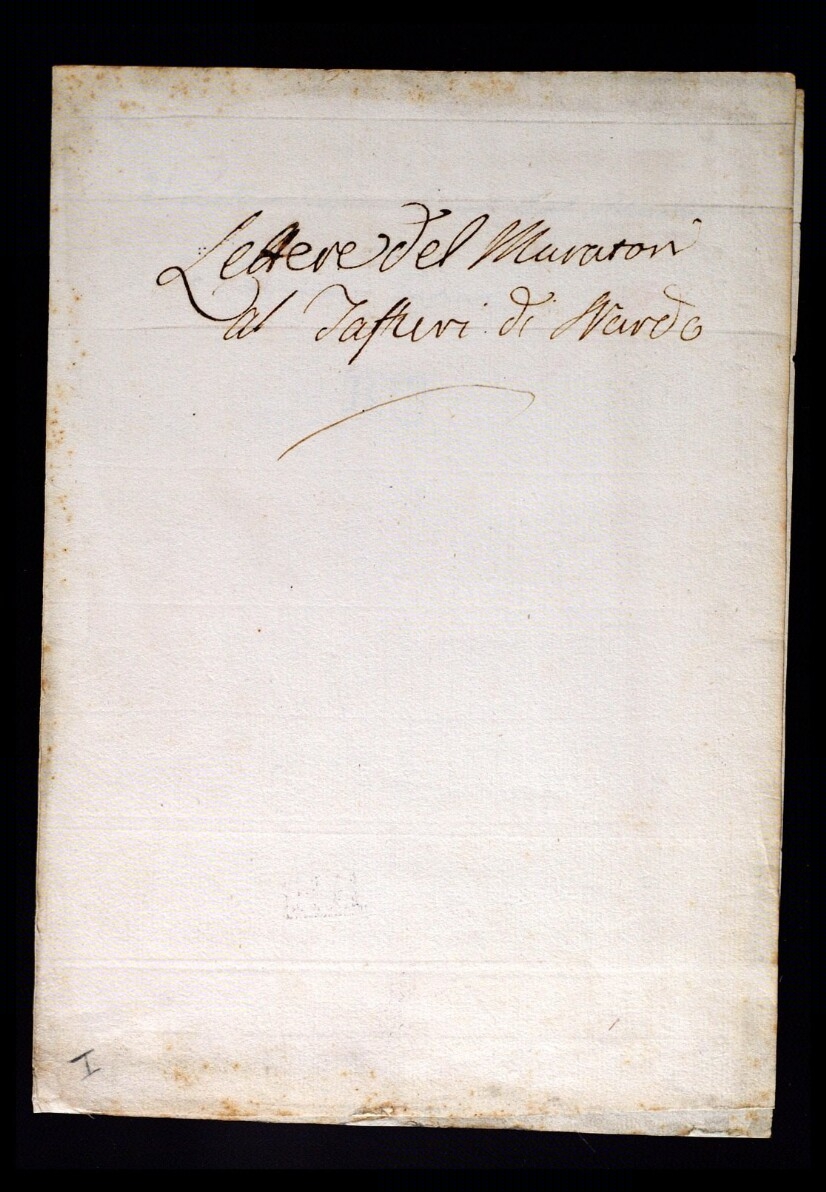 Lettere del Muratori
al Tafuri di Nardo
I